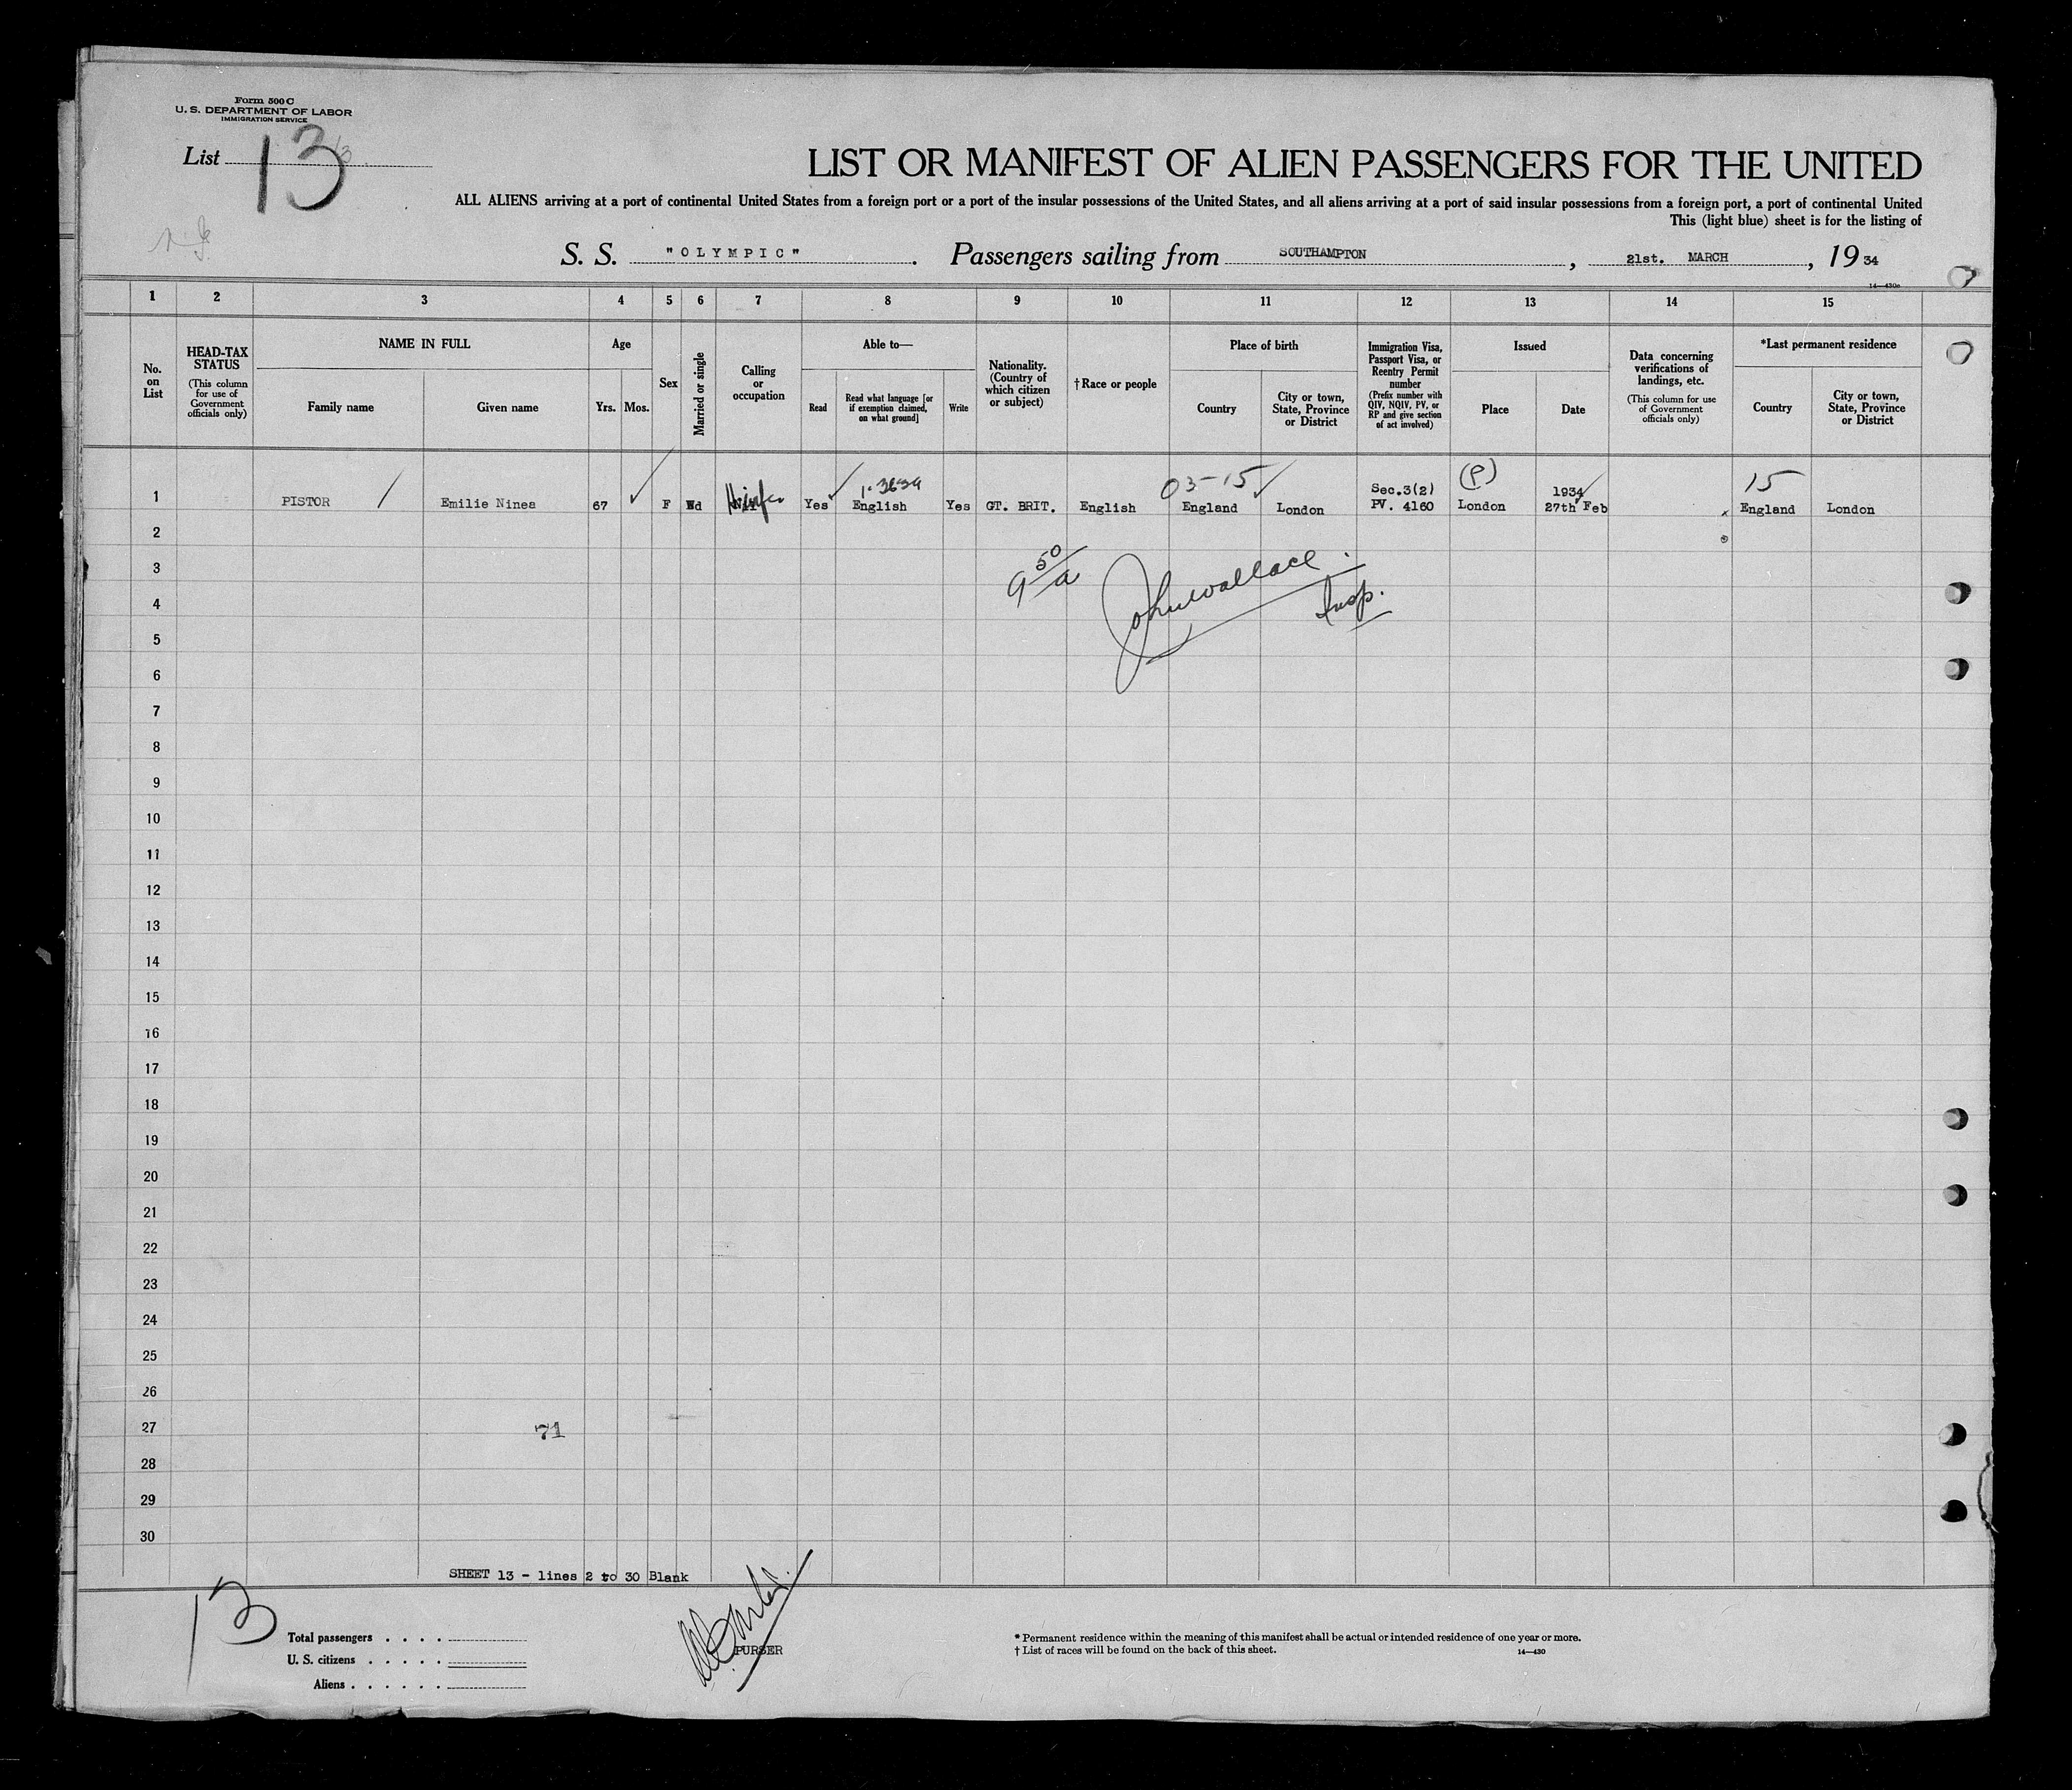 Form 500 C
U. S. DEPARTMENT OF LABOR
IMMIGRATION SERVICE
List 13 13
LIST OR MANIFEST OF ALIEN PASSENGERS FOR THE UNITED
ALL ALIENS arriving at a port of continental United States from a foreign port or a port of the insular possessions of the United States, and all aliens arriving at a port of said insular possessions from a foreign port, a port of continental United
This (light blue) sheet is for the listing of
S. S. "OLYMPIC". Passengers sailing from SOUTHAMPTON, 21st. MARCH, 19 34
14—430a
1 2 3 4 5 6 7 8 9 10 11 12 13 14 15
No. on List
HEAD-TAX STATUS
(This column for use of Government officials only)
NAME IN FULL
Family name
Given name
Age
Yrs.
Mos.
Sex
Married or single
Calling or occupation
Able to—
Read
Read what language [or if exemption claimed, on what ground]
Write
Nationality. (Country of which citizen or subject)
†Race or people
Place of birth
Country
City or town, State, Province or District
Immigration Visa, Passport Visa, or Reentry Permit number
(Prefix number with QIV, NQIV, PV, or RP and give section of act involved)
Issued
Place
Date
Data concerning verifications of landings, etc.
(This column for use of Government officials only)
*Last permanent residence
Country
City or town, State, Province or District
03-15 Sec.3(2) (P) 1934 15
1 PISTOR Emilie Ninea 67 F Wd Yes English Yes GT. BRIT. English England London PV. 4160 London 27th Feb England London
2
9 50/a John Wallace
3
Insp.
4
5
6
7
8
9
10
11
12
13
14
15
16
17
18
19
20
21
22
23
24
25
26
27 71
28
29
30
SHEET 13 - lines 2 to 30 Blank
13
Total passengers . . . .
U. S. citizens . . . . .
Aliens . . . . . .
PURSER
* Permanent residence within the meaning of this manifest shall be actual or intended residence of one year or more.
† List of races will be found on the back of this sheet.
14—430